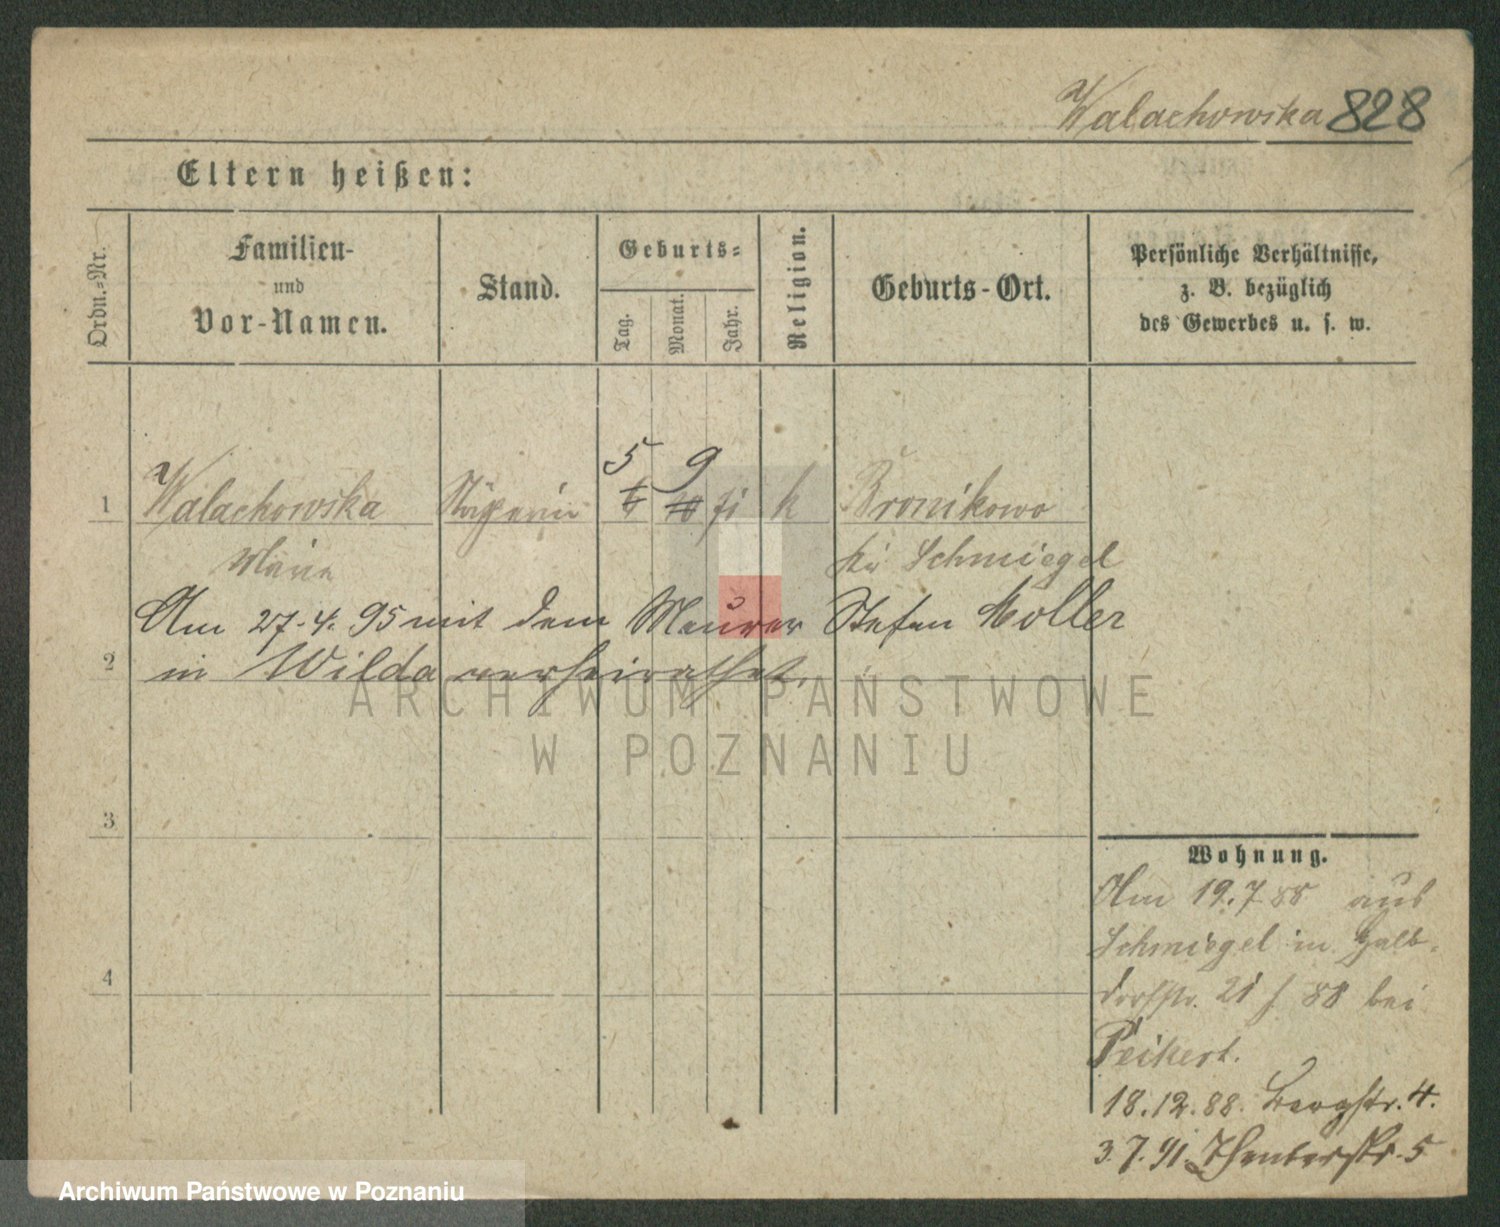 Walachowska 828
Eltern heißen:
Ordn.-Nr.
Familien-
und
Vor-Namen.
Stand.
Geburts-
Tag.
Monat.
Jahr.
Religion.
Geburts-Ort.
Persönliche Verhältnisse,
z. B. bezüglich
des Gewerbes u. s. w.
5 9
1 Walachowska 6 10 71 k Bronikowo
Marie Schmiegel
Am 27.4.95 mit dem Maurer Stefan Moller
2 in Wilda verheirathet.
3
4
Wohnung.
Am 19.7.88 aus
Schmiegel in Halb-
dorfstr. 21 88 bei
Peikert.
18.12.88. Bergstr. 4.
3.7.91. 5
ARCHIWUM PAŃSTWOWE
W POZNANIU
Archiwum Państwowe w Poznaniu